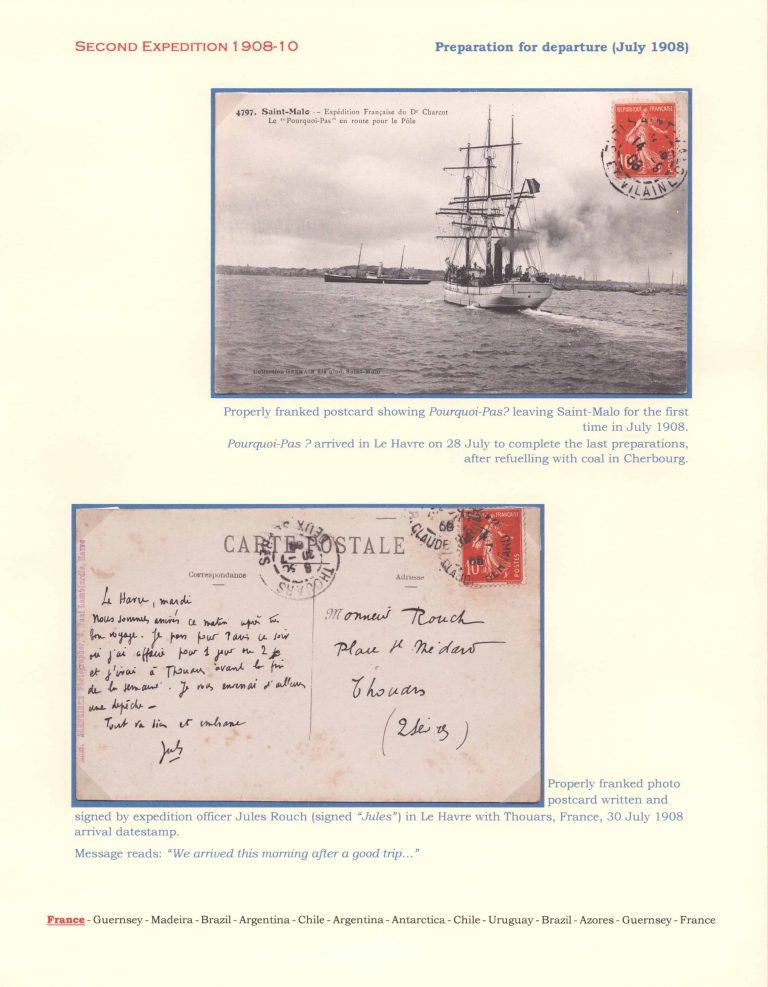 SECOND EXPEDITION 1908-10
Preparation for departure (July 1908)
4797. Saint-Malo -- Expédition Française du Dr Charcot
Le "Pourquoi-Pas" en route pour le Pôle
REPUBLIQUE FRANÇAISE
10
14
08
ET-VILAINE
Collection GERMAIN fils aîné, Saint-Malo
Properly franked postcard showing Pourquoi-Pas? leaving Saint-Malo for the first
time in July 1908.
Pourquoi-Pas ? arrived in Le Havre on 28 July to complete the last preparations,
after refuelling with coal in Cherbourg.
CARTE POSTALE
Correspondance
Adresse
THOUARS
DEUX SEVRES
30
7
08
CLAUDE
FRANÇAISE
10
POSTES
Le Havre, mardi
Nous sommes arrivés ce matin après un
bon voyage. Je pars pour Paris ce soir
où j'ai affaire pour 1 jour ou 2
et j'irai à Thouars avant la fin
de la semaine. Je vous enverrai d'ailleurs
une dépêche -
Tout va bien et embrasse
Jules
Monsieur Rouch
Place St Médard
Thouars
(2 Sèvres)
Photographer, Havre
Properly franked photo
postcard written and
signed by expedition officer Jules Rouch (signed "Jules") in Le Havre with Thouars, France, 30 July 1908
arrival datestamp.
Message reads: "We arrived this morning after a good trip..."
France - Guernsey - Madeira - Brazil - Argentina - Chile - Argentina - Antarctica - Chile - Uruguay - Brazil - Azores - Guernsey - France